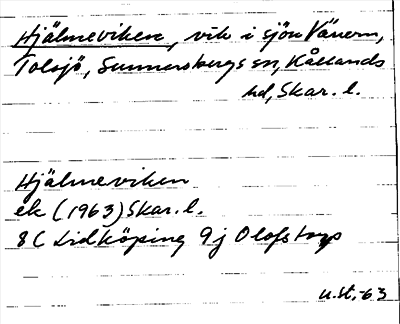 Hjälmeviken, vik i sjön Vänern,
Tolsjö, Sunnersbergs sn, Kållands
hd, Skar. l.
Hjälmeviken
ek (1963) Skar. l.
8C Lidköping 9j Olofstorp
u.st.-63